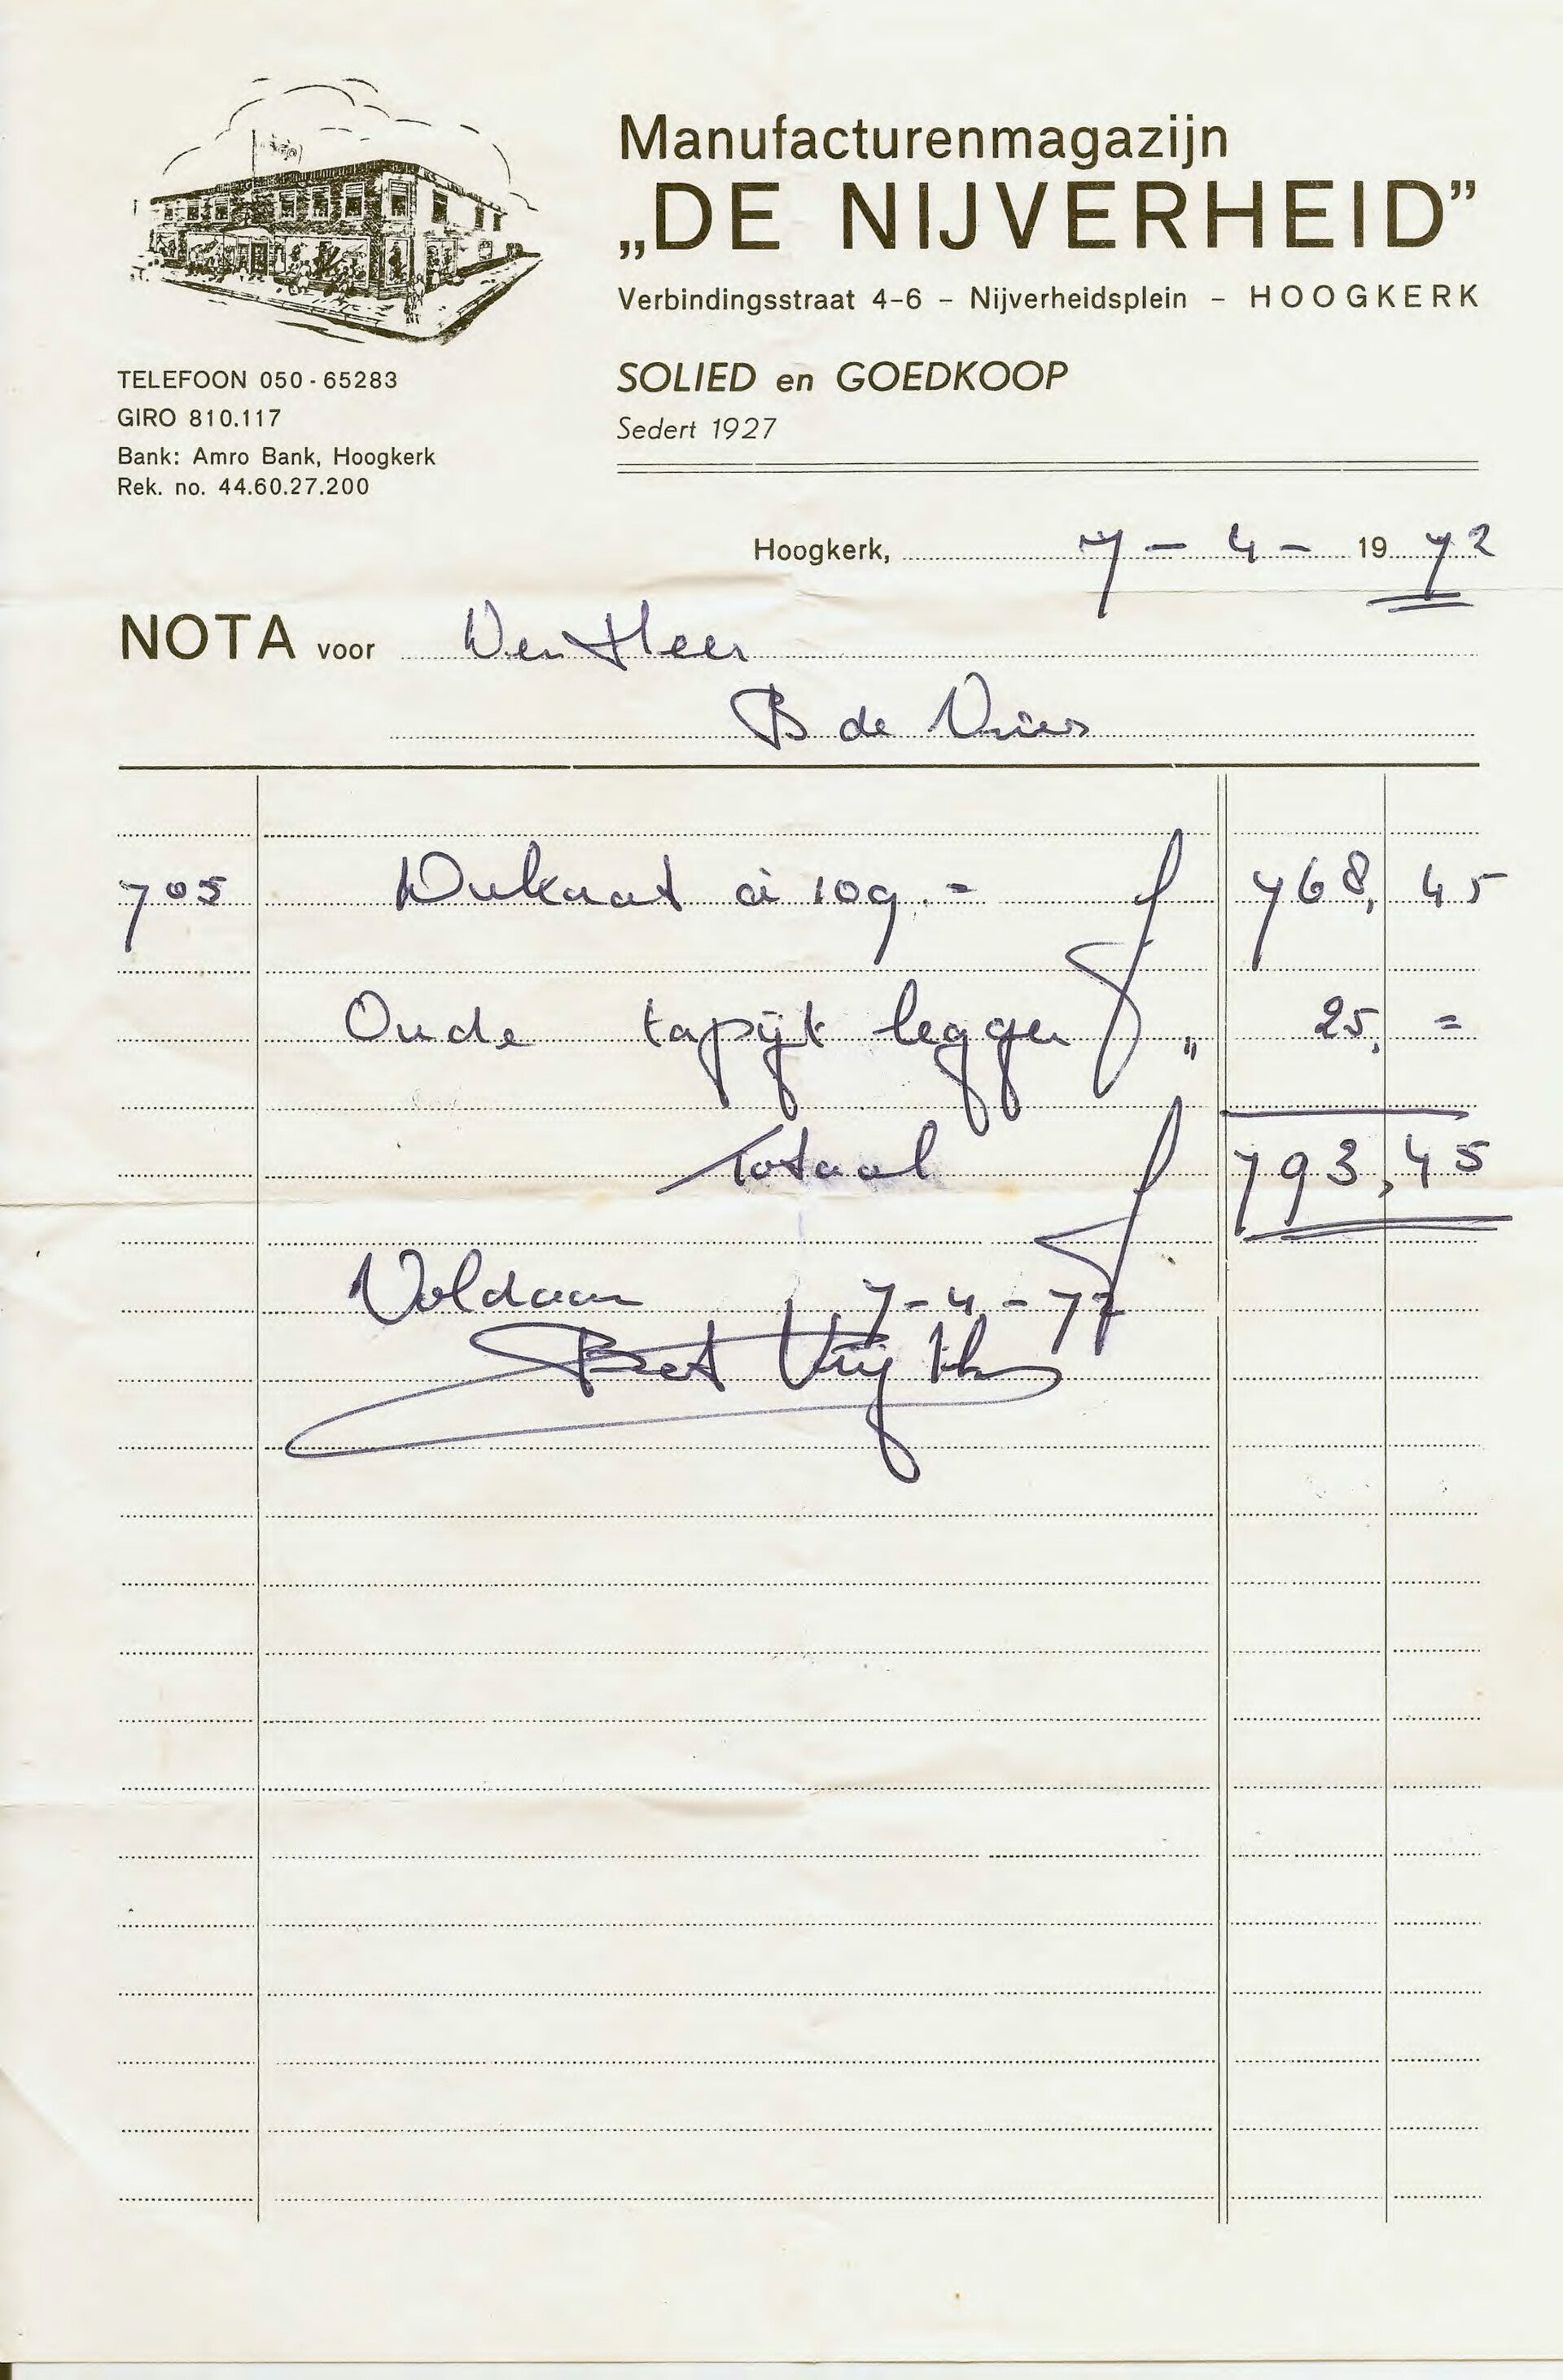 Manufacturenmagazijn
„DE NIJVERHEID”
Verbindingsstraat 4-6 - Nijverheidsplein - HOOGKERK
SOLIED en GOEDKOOP
Sedert 1927
TELEFOON 050-65283
GIRO 810.117
Bank: Amro Bank, Hoogkerk
Rek. no. 44.60.27.200
Hoogkerk, 7-4-1972
NOTA voor Den Heer
B de Vries
705 Dukaat à 109.= f 768,45
Oude tapijt leggen „ 25,=
Totaal f 793,45
Voldaan 7-4-72
Bert